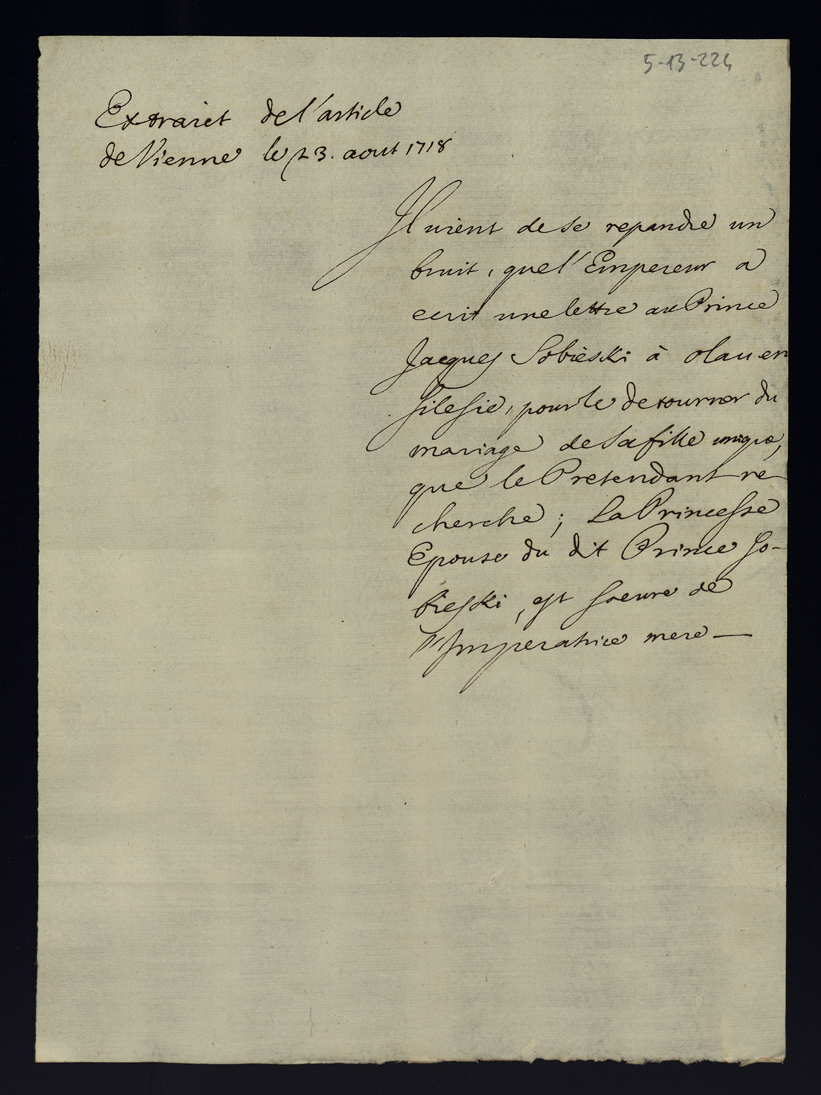 5-13-224
Extraict de l'article
de Vienne le 23. aout 1718
Il vient de se repandre un
bruit, que l'Empereur a
ecrit une lettre au Prince
Jacques Sobieski à olau en
Silesie, pour le detourner du
mariage de Sa fille unique,
que le Pretendant re-
cherche; La Princesse
Epouse du dit Prince So-
bieski, est soeure de
l'Imperatrice mere —